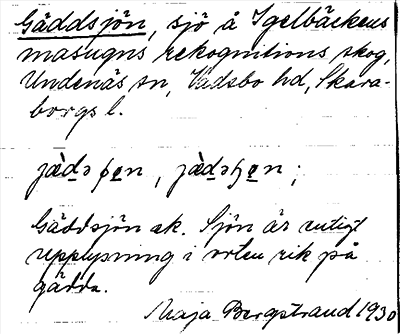 Gäddsjön, sjö å Igelbäckens
masugns rekognitions skog,
Undenäs sn, Vadsbo hd, Skara-
borgs l.
jæ̀dₔʃɵn, jæ̀dₔɧɵn;
Gäddsjön ek. Sjön är enligt
upplysning i orten rik på
gädda.
Maja Bergstrand 1930